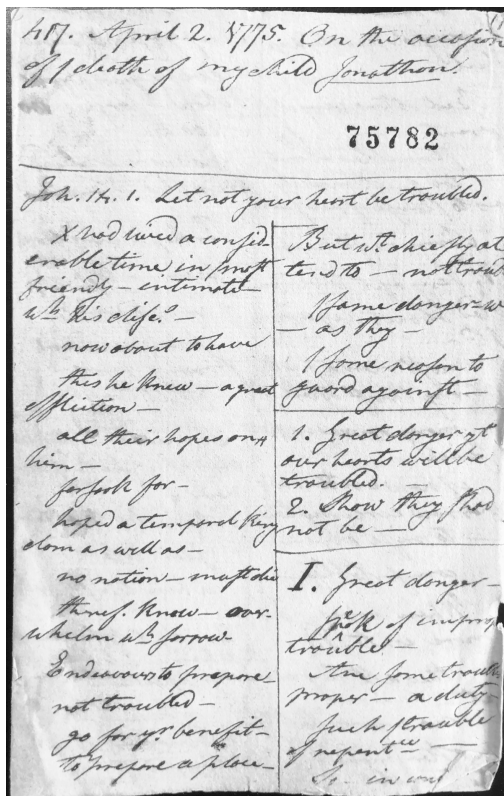 417. April 2. 1775. On the occasion
of ye death of my child Jonathon.
75782
Joh. 14. 1. Let not your heart be troubled.
X had lived a consid
erable time in ye most
friendly — intimate
wh his discs. —
now about to leave
this he knew — a great
affliction —
all their hopes on
him —
forsook for —
hoped a temporal King
dom as well as —
no notion — must die
theref. know — over-
whelm wh sorrow
Endeavours to prepare
not troubled —
go for yr benefit —
to prepare a place —
But wt chiefly at
tend to — not troub
same danger — w
— as they —
same reason to
guard against —
1. Great danger yt
our hearts will be
troubled. —
2. Show they shod
not be —
I. Great danger —
speak of improp
trouble —
Are some troub
proper — a duty
such trouble
of repentce —
So — in